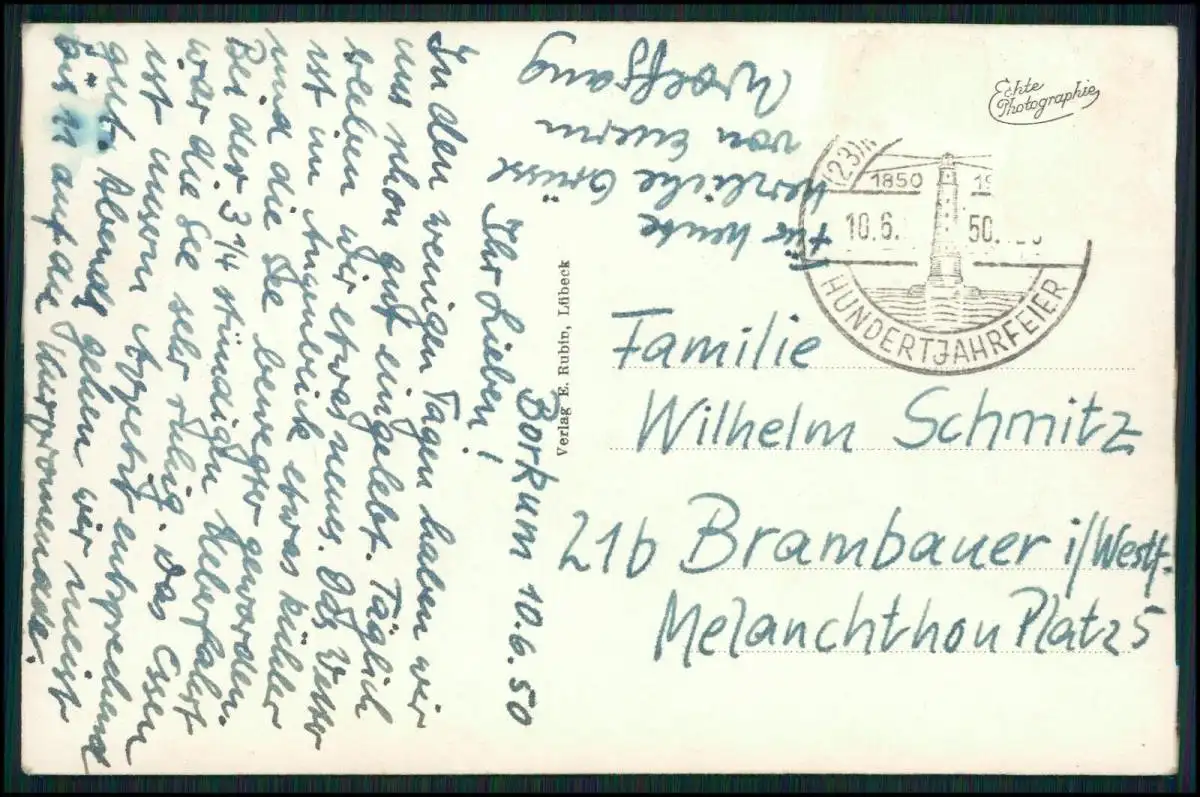 Borkum 10.6.50
Ihr Lieben!
In den wenigen Tagen haben wir
uns schon gut eingelebt. Täglich
erleben wir etwas neues. Das Wetter
ist im Augenblick etwas kühler
und die See bewegter geworden.
Bei der 3 1/4 stündigen Ueberfahrt
war die See sehr ruhig. Das Essen
ist unserm Appetit entsprechend
gut. Abends gehen wir meist
bis 11 auf die Kurpromenade.
Für heute
herzliche Grüsse
von Euerm
Wolfgang
Verlag E. Rubin, Lübeck
Echte
Photographie
(23)
1850
10.6. 50.
HUNDERTJAHRFEIER
Familie
Wilhelm Schmitz
21b Brambauer i/Westf.
Melanchthon Platz 5